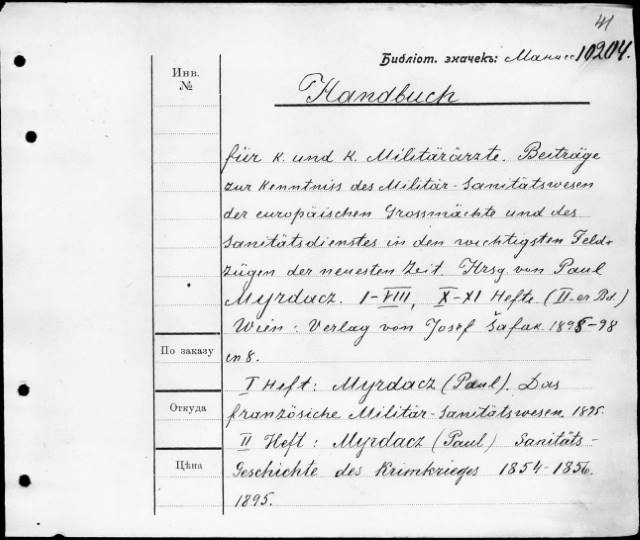 41
Библіот. значекъ: 10204.
Инв.
№
Handbuch
für k. und k. Militärärzte. Beiträge
zur Kenntniss des Militär-Sanitätswesen
der europäischen Grossmächte und des
Sanitätsdienstes in den wichtigsten Feld-
zügen der neuesten Zeit. Hrsg. von Paul
Myrdacz. I-VIII, X-XI Hefte (II-er Bd.)
Wien: Verlag von Josef Šafak. 1895-98
in 8.
По заказу
I Heft: Myrdacz (Paul). Das
Откуда
französiche Militär-Sanitätswesen. 1895.
II Heft: Myrdacz (Paul) Sanitäts-
Цѣна
Geschichte des Krimkrieges 1854-1856.
1895.